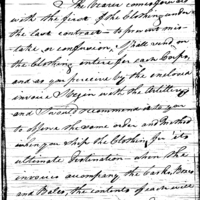 The bearer comes forward
with the first of the Clothing under
the last contract - to prevent mis-
take or confusion, I shall send on
the Clothing entire for each Corps,
and as you perceive by the enclosed
invoice. I begin with the Artillery
and I would recommend it to you
to observe the same order and
when you ship the Clothing for its
ultimate destination when the
invoices accompany the Casks, Boxes
and Bales, the contents of each will